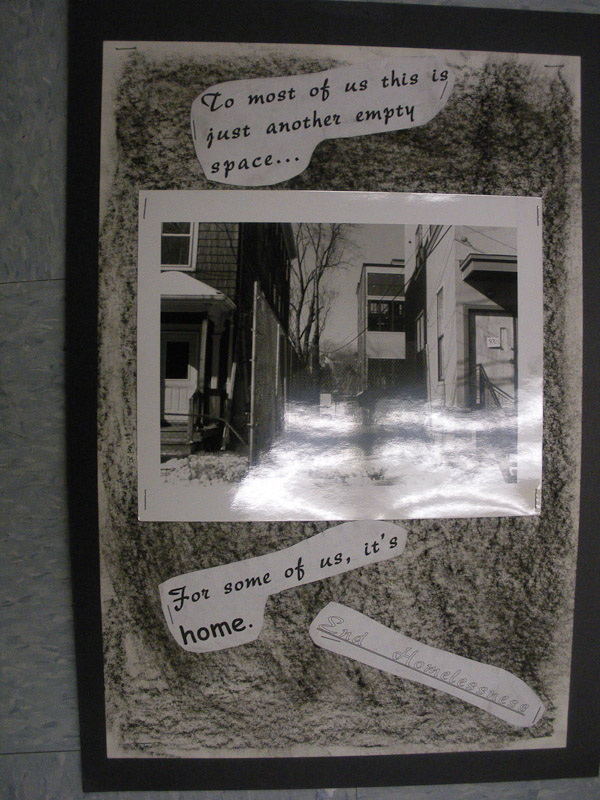 To most of us this is
just another empty
space...
For some of us, it's
home.
End Homelessness